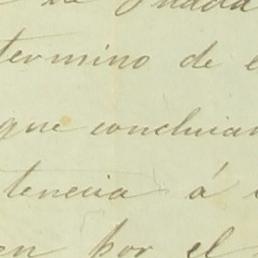 de
termino de
que concluian
tencia á
en por el